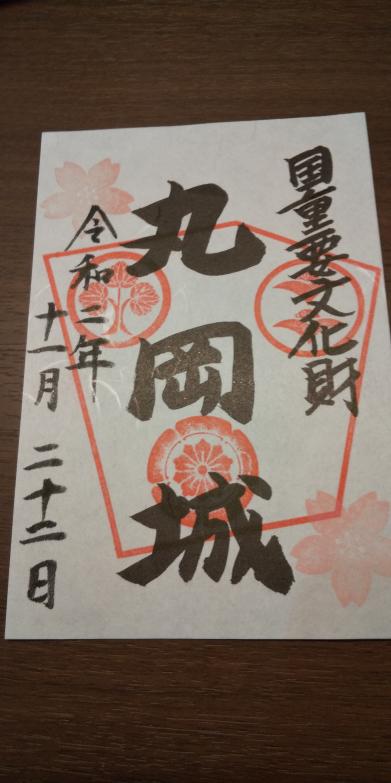 国重要文化財
丸岡城
令和二年
十一月 二十二日